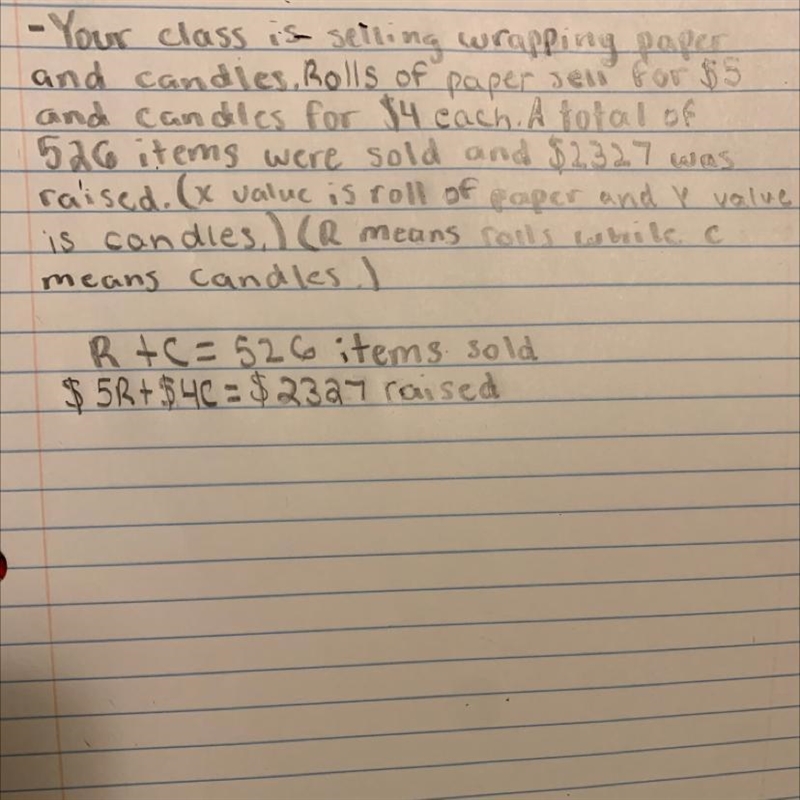 -Your class is selling wrapping paper
and candles. Rolls of paper sell for $5
and candles for $4 each. A total of
526 items were sold and $2327 was
raised. (x value is roll of paper and Y value
is candles.) (R means rolls while c
means candles.)
R + C = 526 items sold
$5R + $4C = $2327 raised